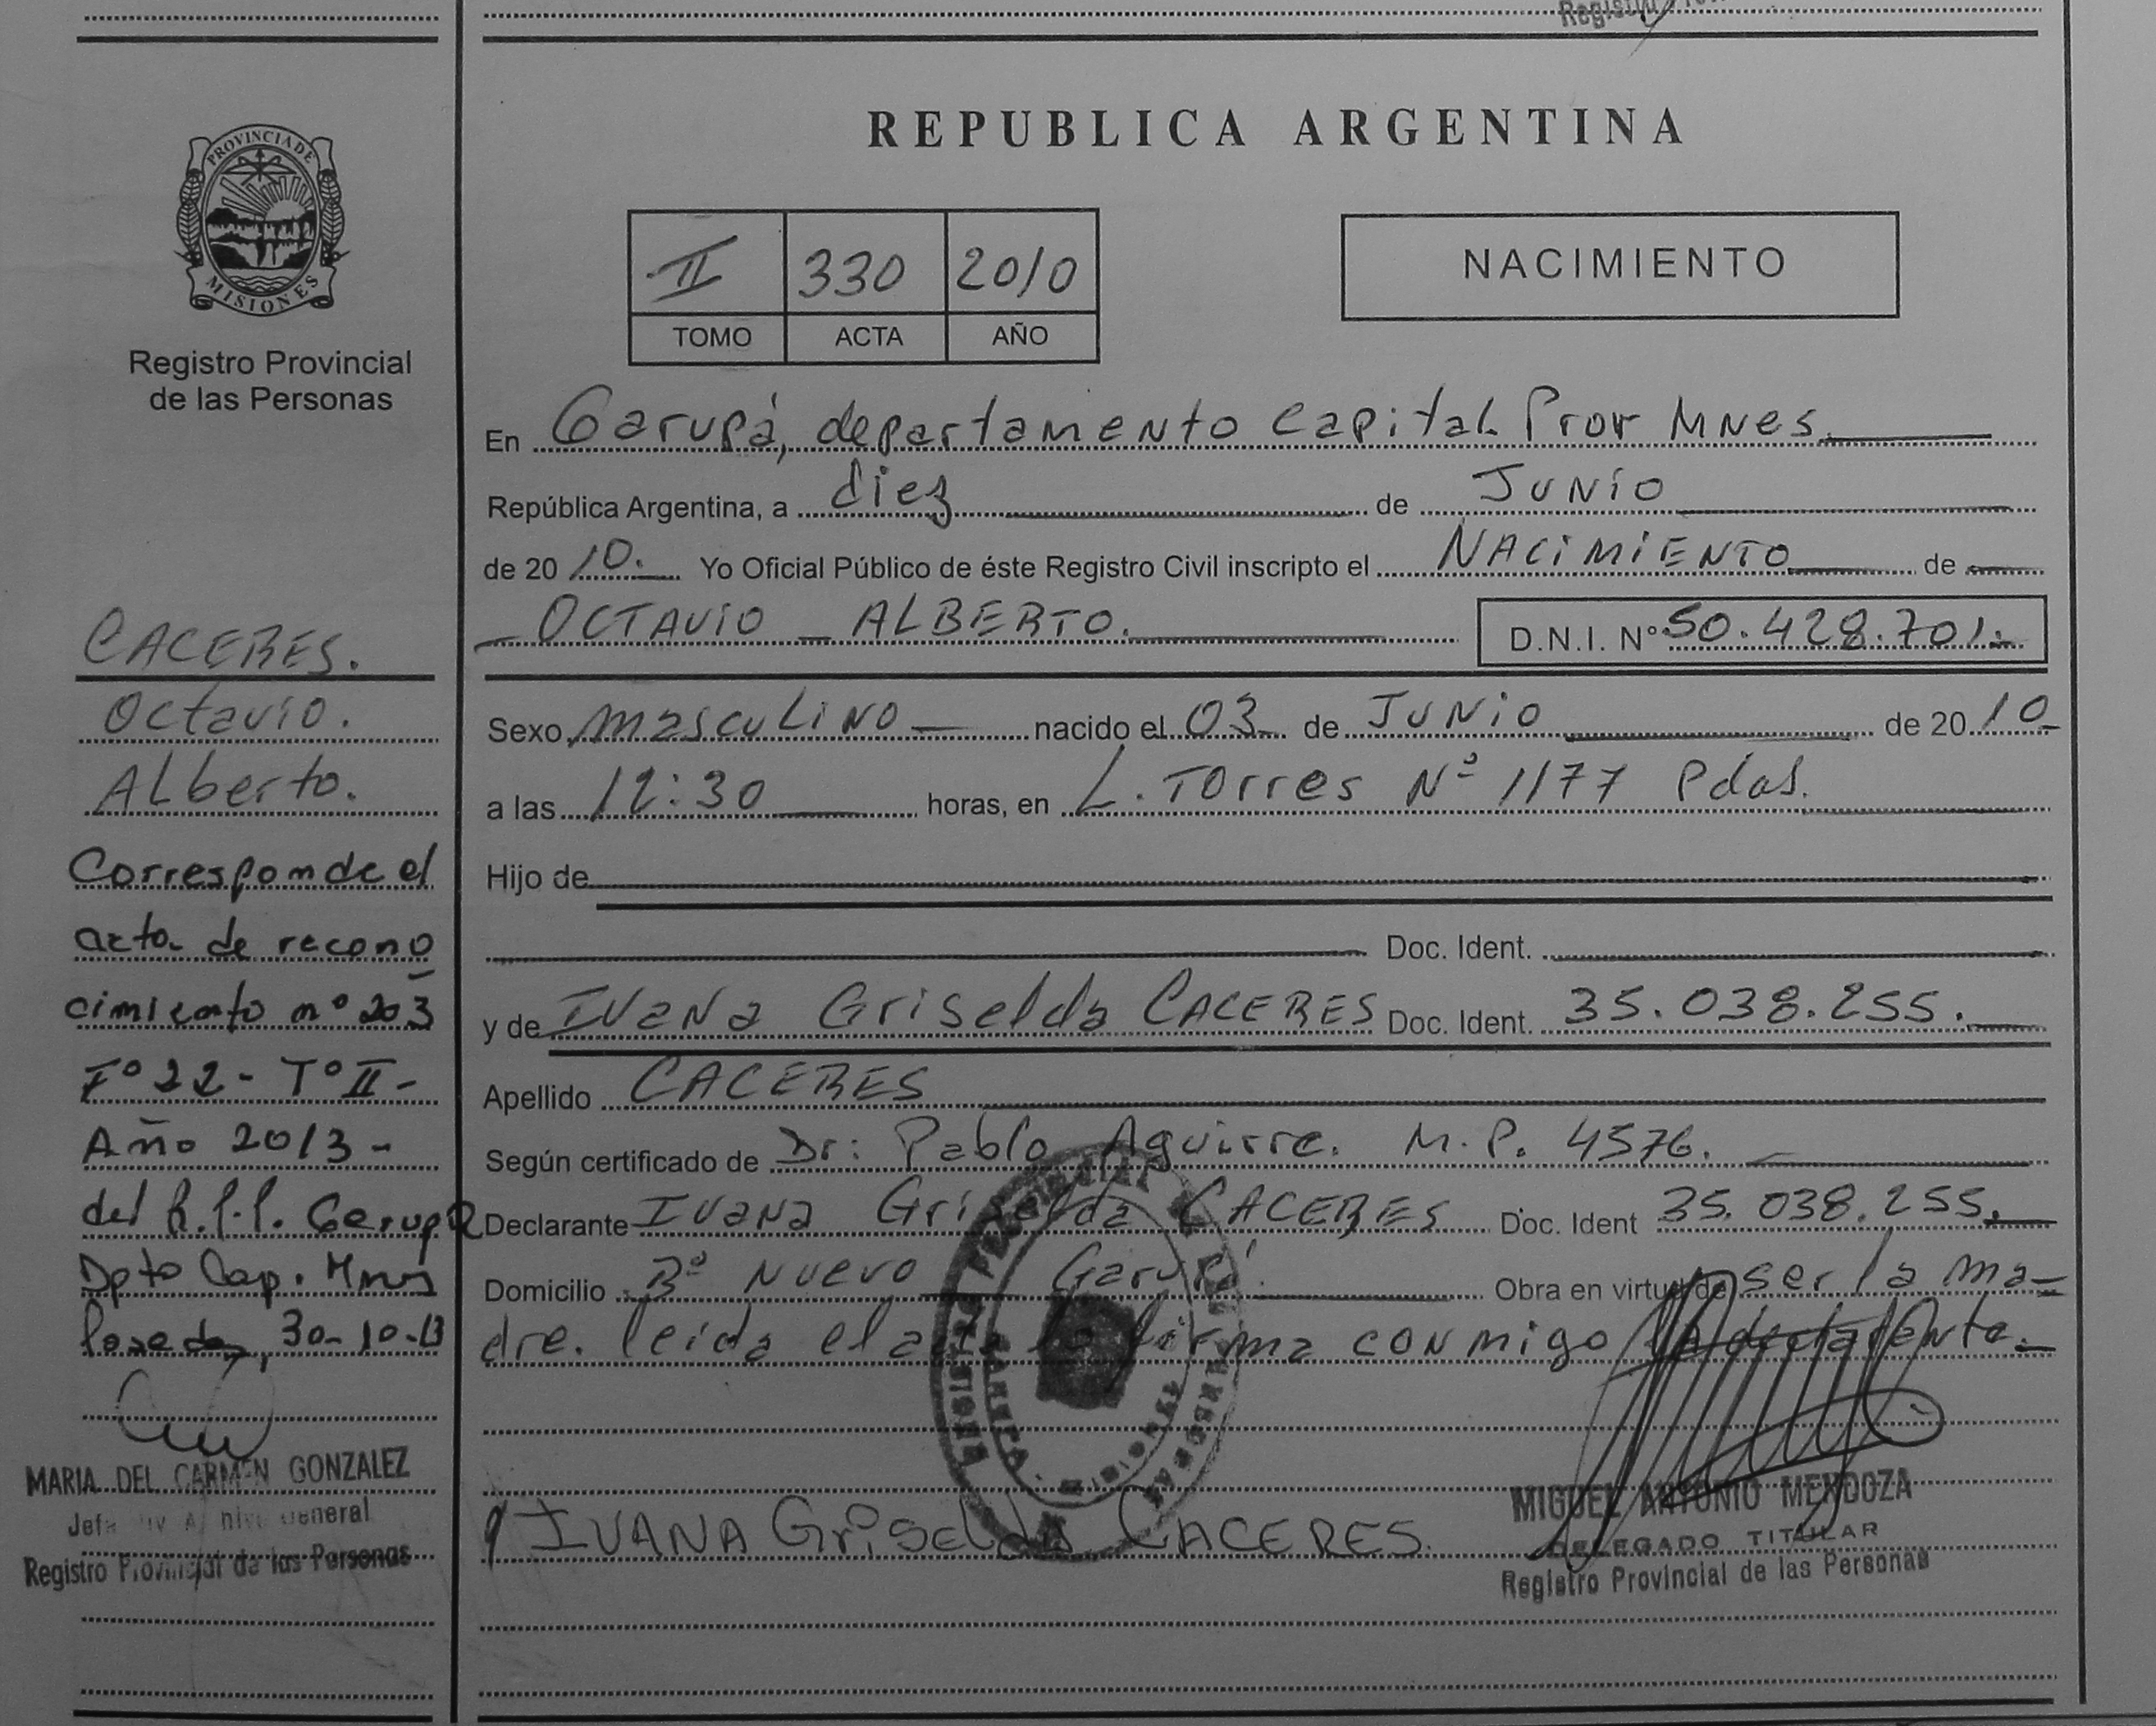 PROVINCIA DE
MISIONES
Registro Provincial
de las Personas
CACERES.
Octavio.
Alberto.
Corresponde el
acta de recono
cimiento nº 203
Fº 22 - Tº II -
Año 2013 -
del R.P.P. Garupa
Dpto Cap. Mnes
Posadas, 30-10-13
MARIA DEL CARMEN GONZALEZ
General
Registro Provincial de las Personas
REPUBLICA ARGENTINA
II 330 2010
TOMO ACTA AÑO
NACIMIENTO
En Garupá, departamento Capital Prov Mnes.
República Argentina, a diez de Junio
de 20 10. Yo Oficial Público de éste Registro Civil inscripto el NACIMIENTO de
OCTAVIO ALBERTO. D.N.I. Nº 50.428.701.
Sexo masculino nacido el 03 de Junio de 20 10
a las 12:30 horas, en L. Torres Nº 1177 Pdas.
Hijo de
Doc. Ident.
y de Ivana Griselda CACERES Doc. Ident. 35.038.255.
Apellido CACERES
Según certificado de Dr: Pablo Aguirre. M.P. 4576.
Declarante Ivana Griselda CACERES Doc. Ident 35.038.255.
Domicilio Bº Nuevo Garupá. Obra en virtud de ser la ma-
dre. leida el acta la firma conmigo la declarante.
IVANA GriSelda CACERES.
MIGUEL ANTONIO MENDOZA
DELEGADO TITULAR
Registro Provincial de las Personas